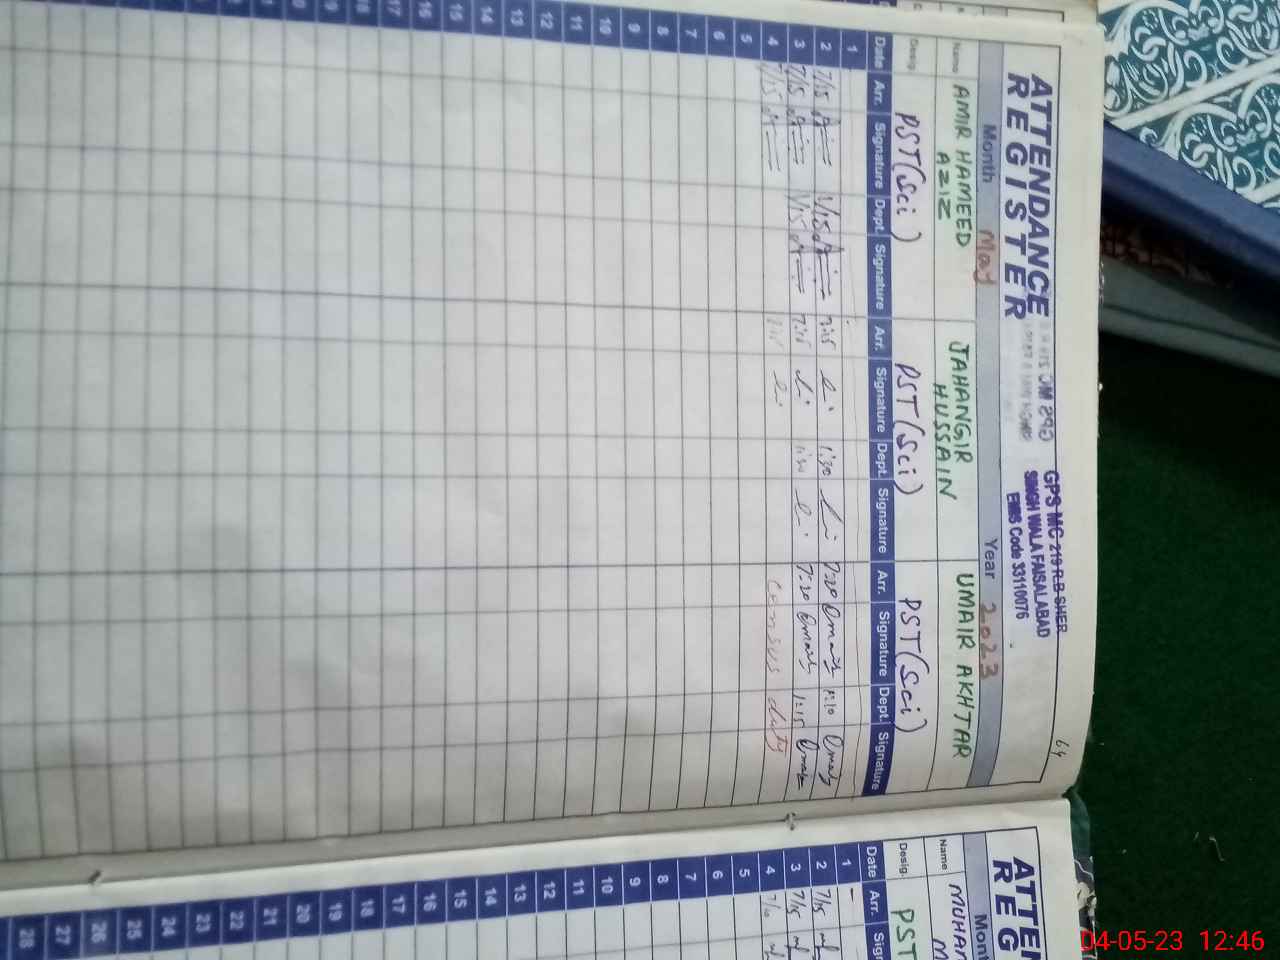 64
ATTENDANCE
REGISTER
GPS MC 219 R.B SHER
SINGH WALA FAISALABAD
EMIS Code 33110076
Month May Year 2023
Name AMIR HAMEED AZIZ JAHANGIR HUSSAIN UMAIR AKHTAR
Desig. PST(Sci) PST(Sci) PST(Sci)
Date Arr. Signature Dept. Signature Arr. Signature Dept. Signature Arr. Signature Dept. Signature
1
2 7/15 1/15 7:15 1:30 7:20 1:10
3 7/15 1/15 7:15 1:30 7:20 1:15
4 7/15 census duty
5
6
7
8
9
10
11
12
13
14
15
16
17
ATTEN
REG
Mont
Name MUHAM
M
Desig. PST
Date Arr. Sign
1 –
2 7/15
3 7/15
4 7/10
5
6
7
8
9
10
11
12
13
14
15
16
17
18
19
20
21
22
23
24
25
26
27
28
04-05-23 12:46